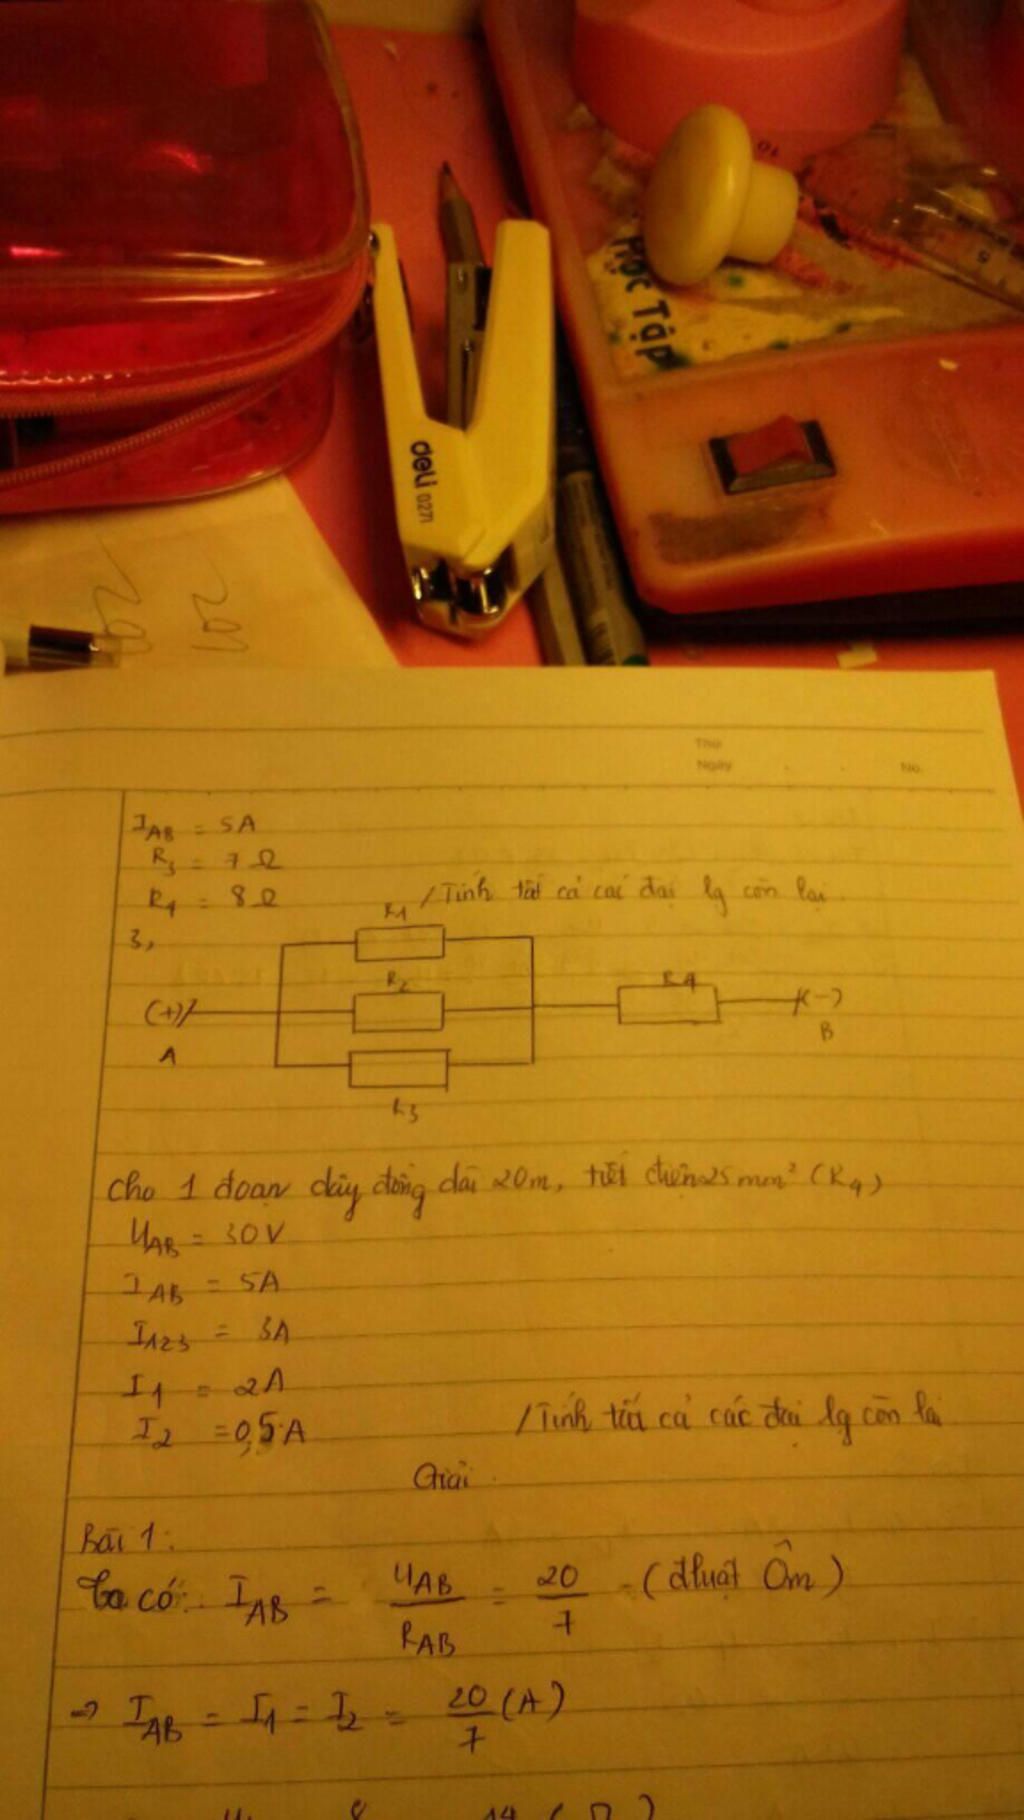 10
9
Học Tập
deli 0271
201
Thứ
Ngày No.
I AB = 5A
R3 = 7 Ω
R4 = 8 Ω /Tính tất cả các đại lg còn lại.
R1
3,
R2
R4
(+) (-)
A B
R3
Cho 1 đoạn dây đồng dài 20m, tiết diện 25 mm² (R4)
UAB = 30V
I AB = 5A
I123 = 3A
I1 = 2A
I2 = 0,5A /Tính tất cả các đại lg còn lại
Giải.
Bài 1:
Ta có: I AB = UAB / RAB = 20 / 7 (đluật Ôm)
=> I AB = I1 = I2 = 20 / 7 (A)